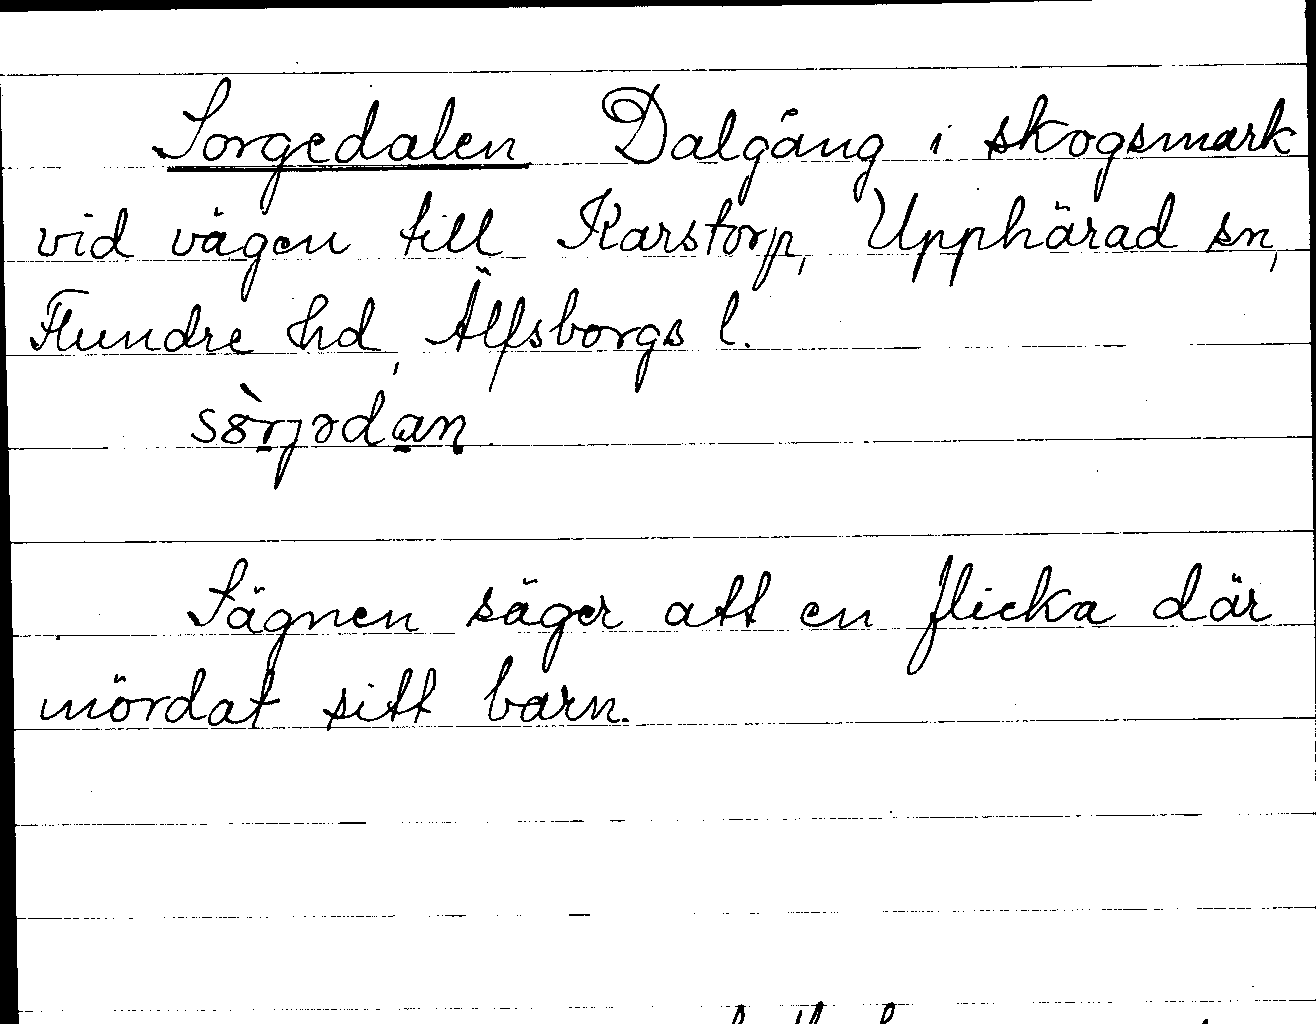 Sorgedalen Dalgång i skogsmark
vid vägen till Karstorp, Upphärad sn,
Flundre hd, Älfsborgs l.
sörjədan
Sägnen säger att en flicka där
mördat sitt barn.